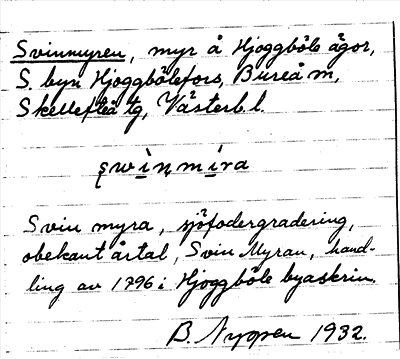 Svinmyren, myr å Hjoggböle ägor,
S. byn Hjoggbölefors, Bureå m,
Skellefteå tg, Västerb.l.
ʂwìnmíra
Svin myra, sjöfodergradering,
obekant årtal, Svin Myran, hand-
ling av 1796 i Hjoggböle byaskrin.
B. Nyqren 1932.